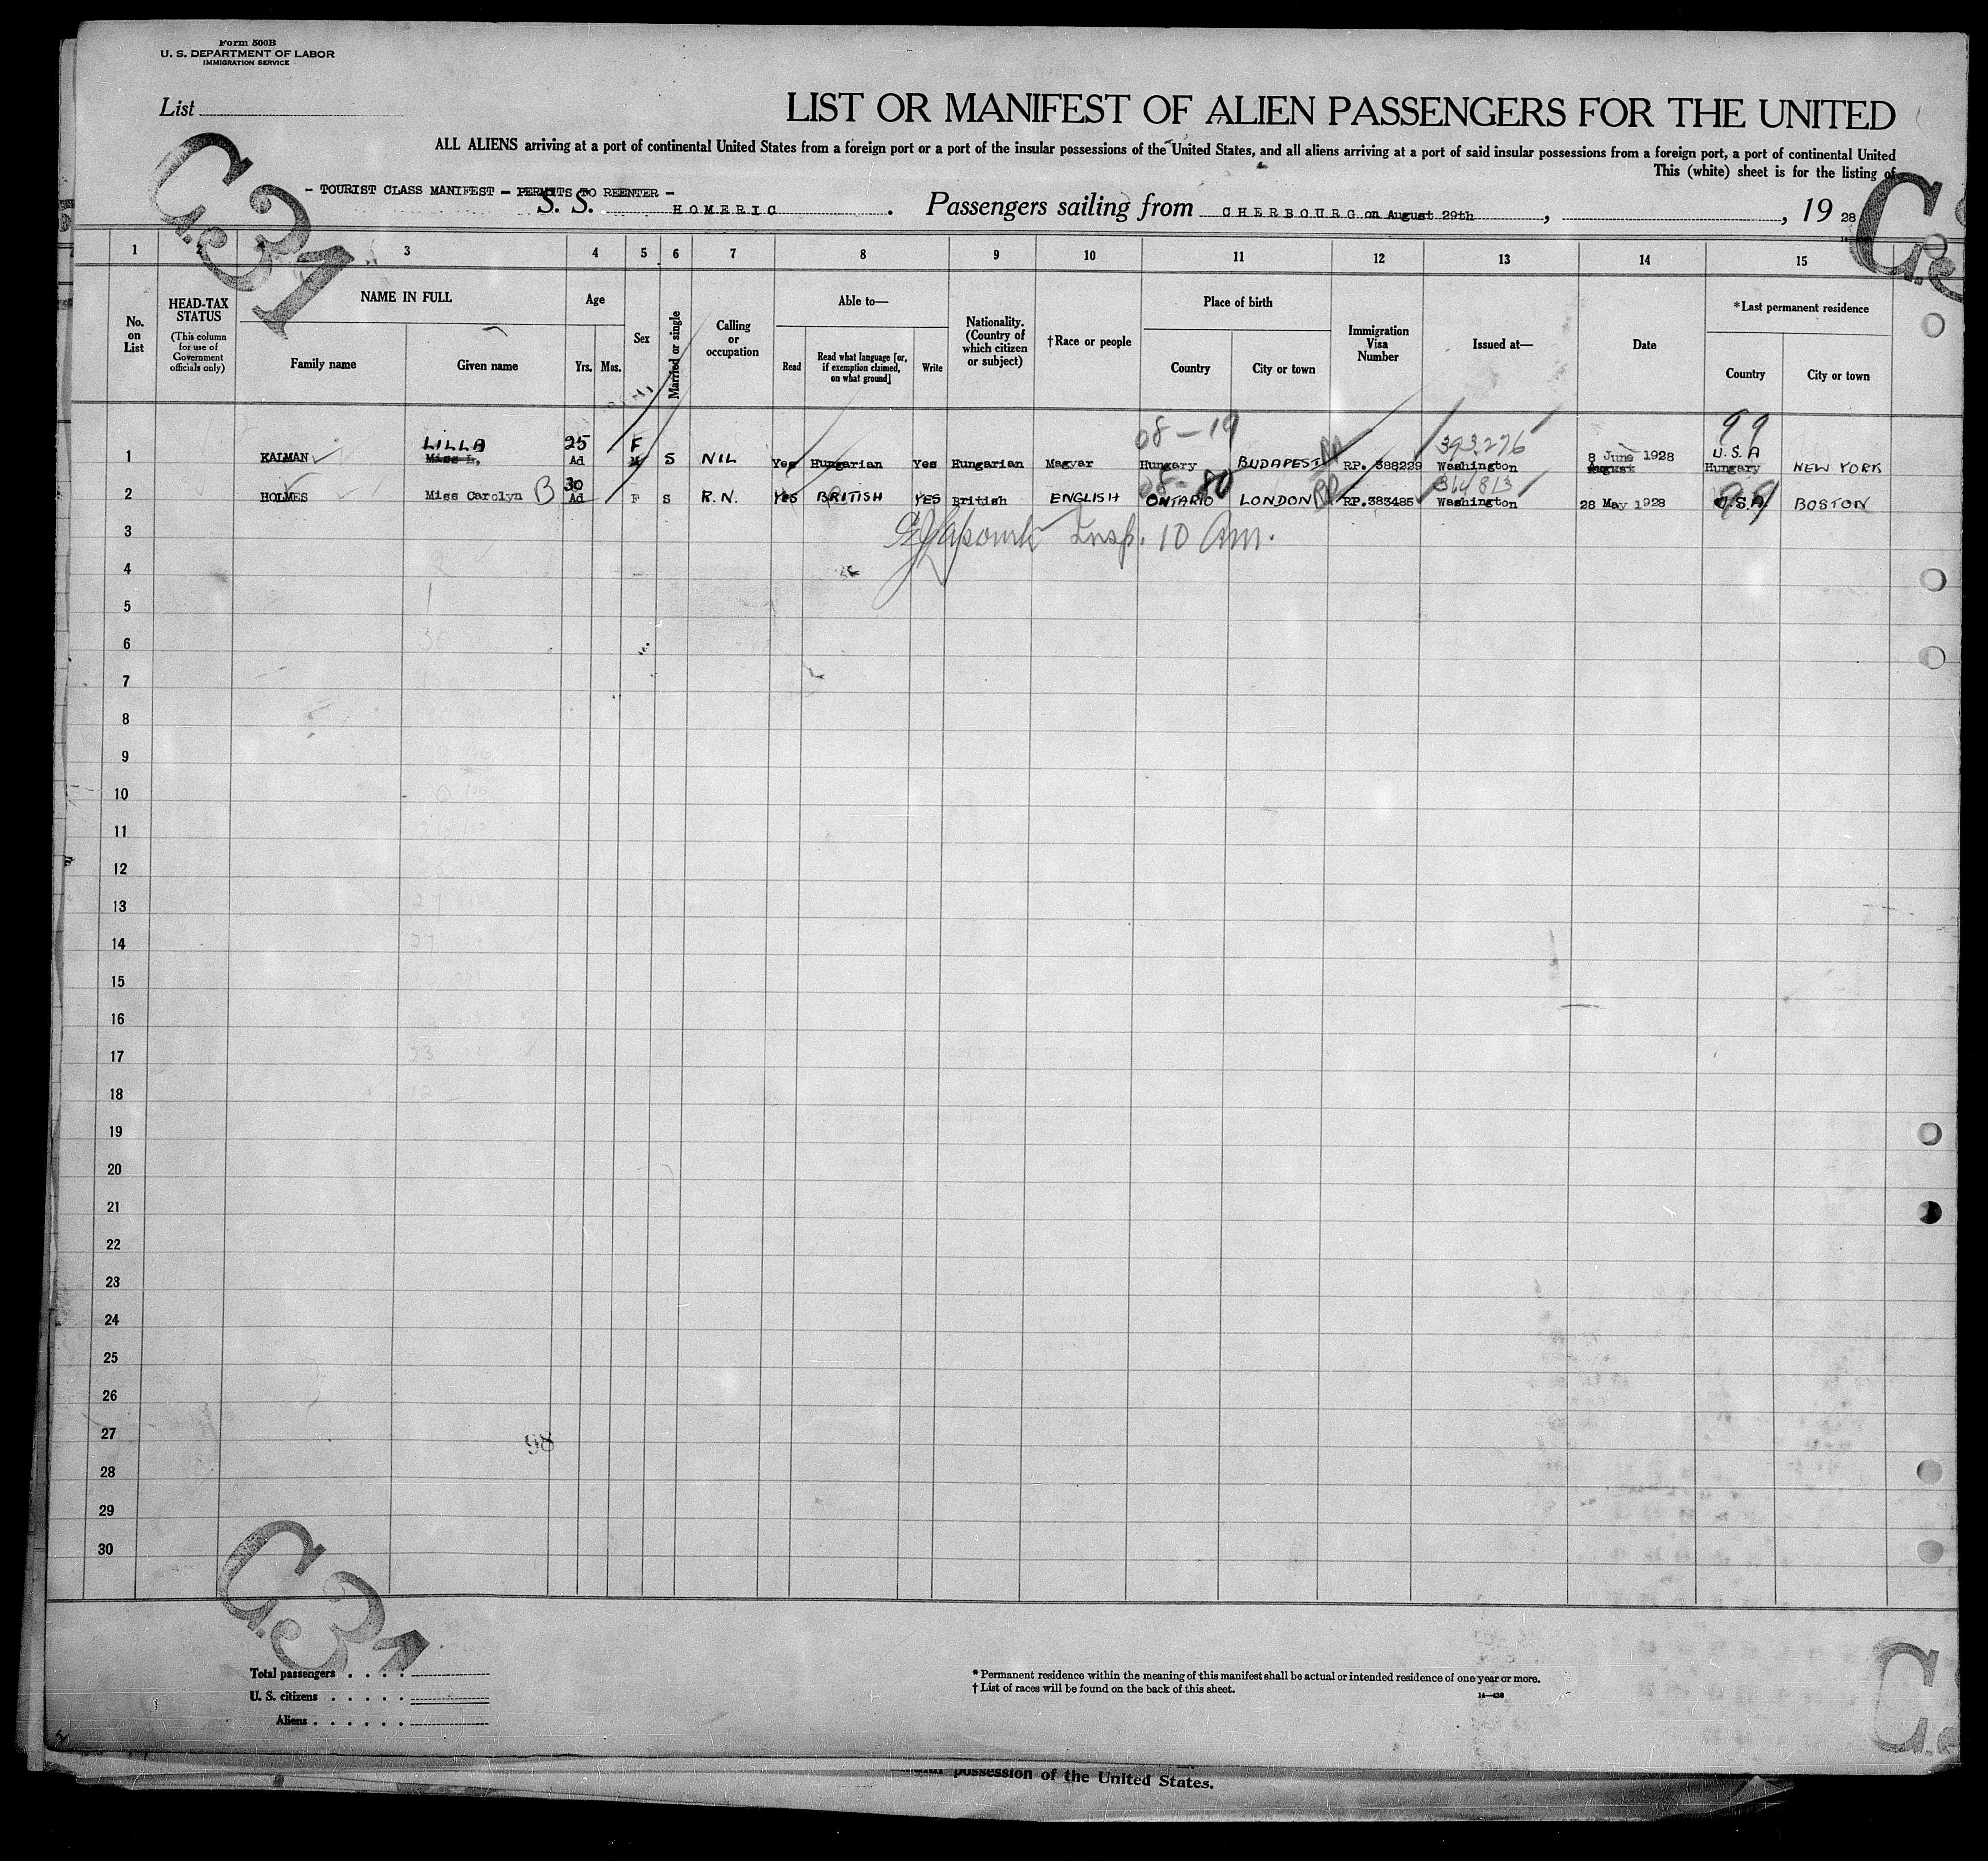 Form 500B
U. S. DEPARTMENT OF LABOR
IMMIGRATION SERVICE
List
LIST OR MANIFEST OF ALIEN PASSENGERS FOR THE UNITED
ALL ALIENS arriving at a port of continental United States from a foreign port or a port of the insular possessions of the United States, and all aliens arriving at a port of said insular possessions from a foreign port, a port of continental United
This (white) sheet is for the listing of
C.31
- TOURIST CLASS MANIFEST - PERMITS TO REENTER -
S. S. HOMERIC. Passengers sailing from CHERBOURG on August 29th, , 19 28
1 2 3 4 5 6 7 8 9 10 11 12 13 14 15
No. on List
HEAD-TAX STATUS
(This column for use of Government officials only)
NAME IN FULL
Family name Given name
Age
Yrs. Mos.
Sex
Married or single
Calling or occupation
Able to—
Read Read what language [or, if exemption claimed, on what ground] Write
Nationality. (Country of which citizen or subject)
†Race or people
Place of birth
Country City or town
Immigration Visa Number
Issued at—
Date
*Last permanent residence
Country City or town
08 - 19 393276 99
LILLA 25 F U.S.A
1 KALMAN Miss L, Ad M S NIL Yes Hungarian Yes Hungarian Magyar Hungary BUDAPEST RP. 388229 Washington 8 June 1928 August Hungary NEW YORK
30 08-80 99
2 HOLMES Miss Carolyn B Ad F S R.N. YES BRITISH YES British ENGLISH ONTARIO LONDON RP.383485 Washington 28 May 1928 U.S.A. BOSTON
3 Insp. 10 Am.
4
5
6
7
8
9
10
11
12
13
14
15
16
17
18
19
20
21
22
23
24
25
26
27
98
28
29
30
C.31
Total passengers
U. S. citizens
Aliens
* Permanent residence within the meaning of this manifest shall be actual or intended residence of one year or more.
† List of races will be found on the back of this sheet.
14—430
possession of the United States.